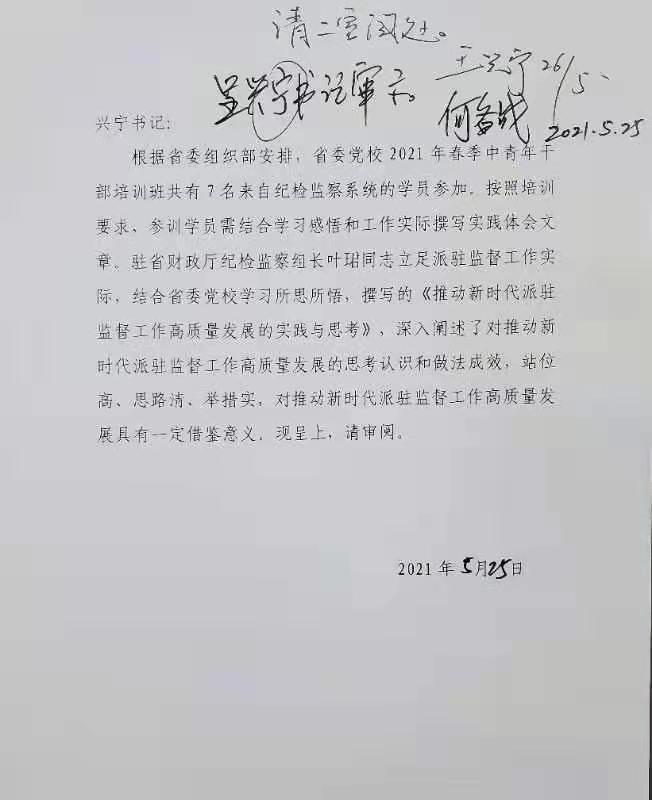 请二室阅处。
王兴宁 26/5
呈兴宁书记审示。
何金成 2021.5.25
兴宁书记:
根据省委组织部安排，省委党校 2021 年春季中青年干
部培训班共有 7 名来自纪检监察系统的学员参加。按照培训
要求、参训学员需结合学习感悟和工作实际撰写实践体会文
章。驻省财政厅纪检监察组长叶珺同志立足派驻监督工作实
际，结合省委党校学习所思所悟，撰写的《推动新时代派驻
监督工作高质量发展的实践与思考》，深入阐述了对推动新
时代派驻监督工作高质量发展的思考认识和做法成效，站位
高、思路清、举措实，对推动新时代派驻监督工作高质量发
展具有一定借鉴意义。现呈上，请审阅。
2021 年 5月25日